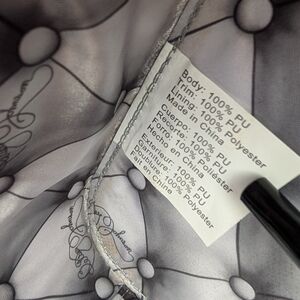 Body: 100% PU
Trim: 100% PU
Lining: 100% Polyester
Made in China
Cuerpo: 100% PU
Recorte: 100% PU
Forro: 100% Poliéster
Hecho en China
Exterieur: 100% PU
Garniture: 100% PU
Doublure: 100% Polyester
ait en Chine
Betsey Johnson